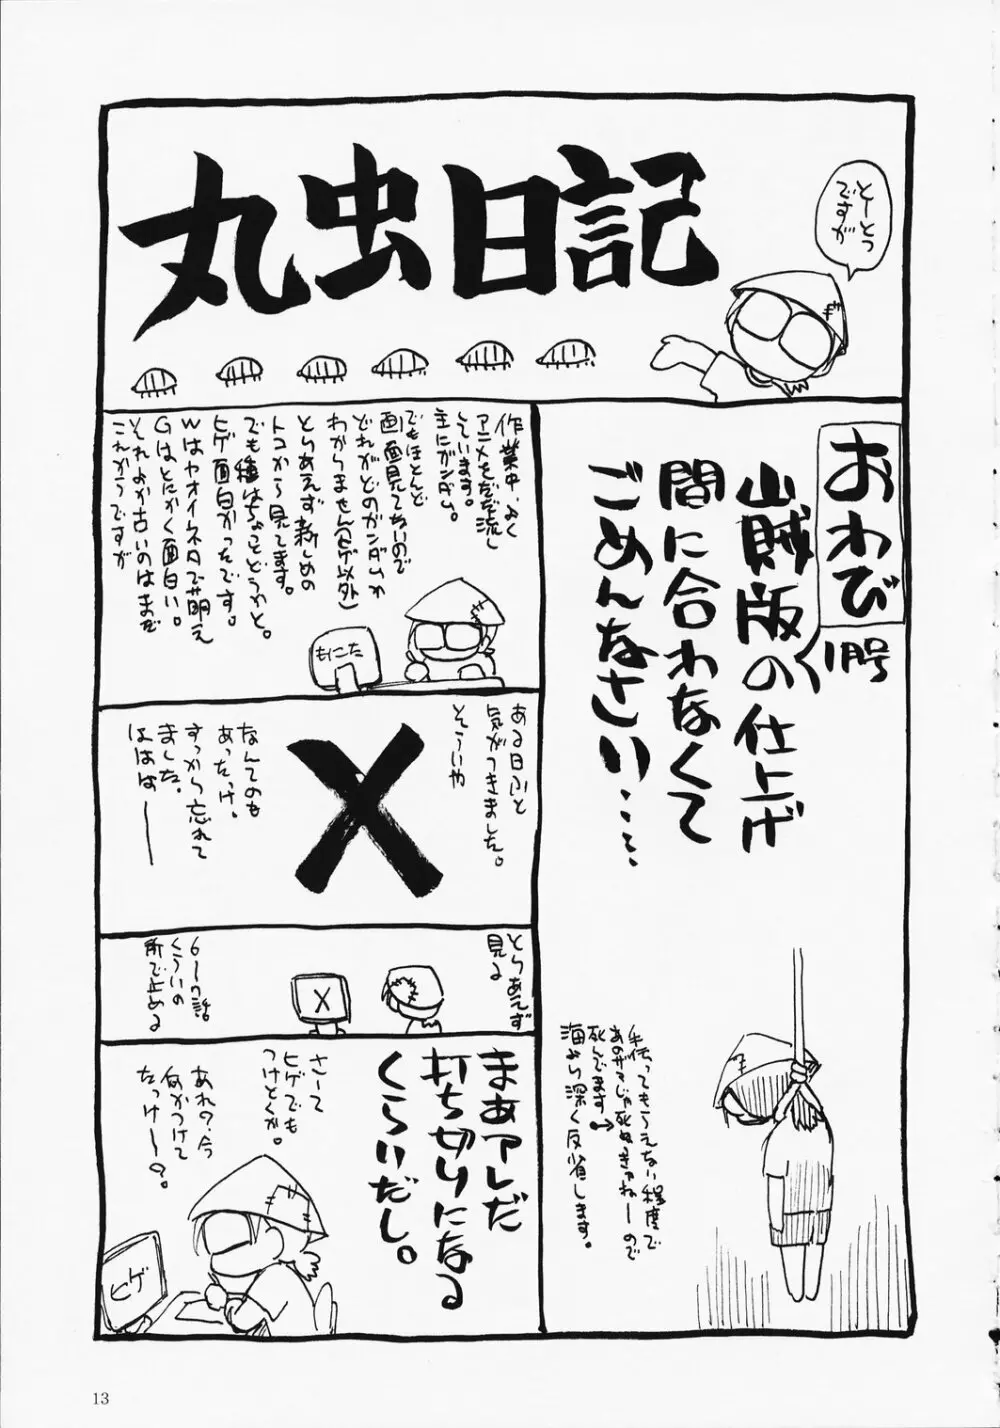 丸虫日記
とーとつ
ですが
おわび
1号
山賊版の仕上げ
間に合わなくて
ごめんなさい……
手伝ってもらえない程度で
あのザマじゃ死ぬきゃねーので
死んでます→
海より深く反省します。
作業中、よく
アニメをだだ流し
しています。
主にガンダム。
でもほとんど
画面見てないので
どれがどのガンダムか
わかりません(ヒゲ以外)
とりあえず新しめの
トコから見てます。
でも種はちょっとどうかと。
ヒゲ面白かったです。
Wはヤオイネタで萌え
Gはとにかく面白い。
それよか古いのはまだ
これからですが
もにこた
ある日ふと
気がつきました。
そういや
X
なんてのも
あったっけ。
すっかり忘れて
ました。
ははは――
とりあえず
見る
X
6〜7話
くらいの
所で止める
まあアレだ
打ち切りになる
くらいだし。
さーて
ヒゲでも
つけとくか。
あれ?今
何かつけて
たっけー?
ヒゲ
13